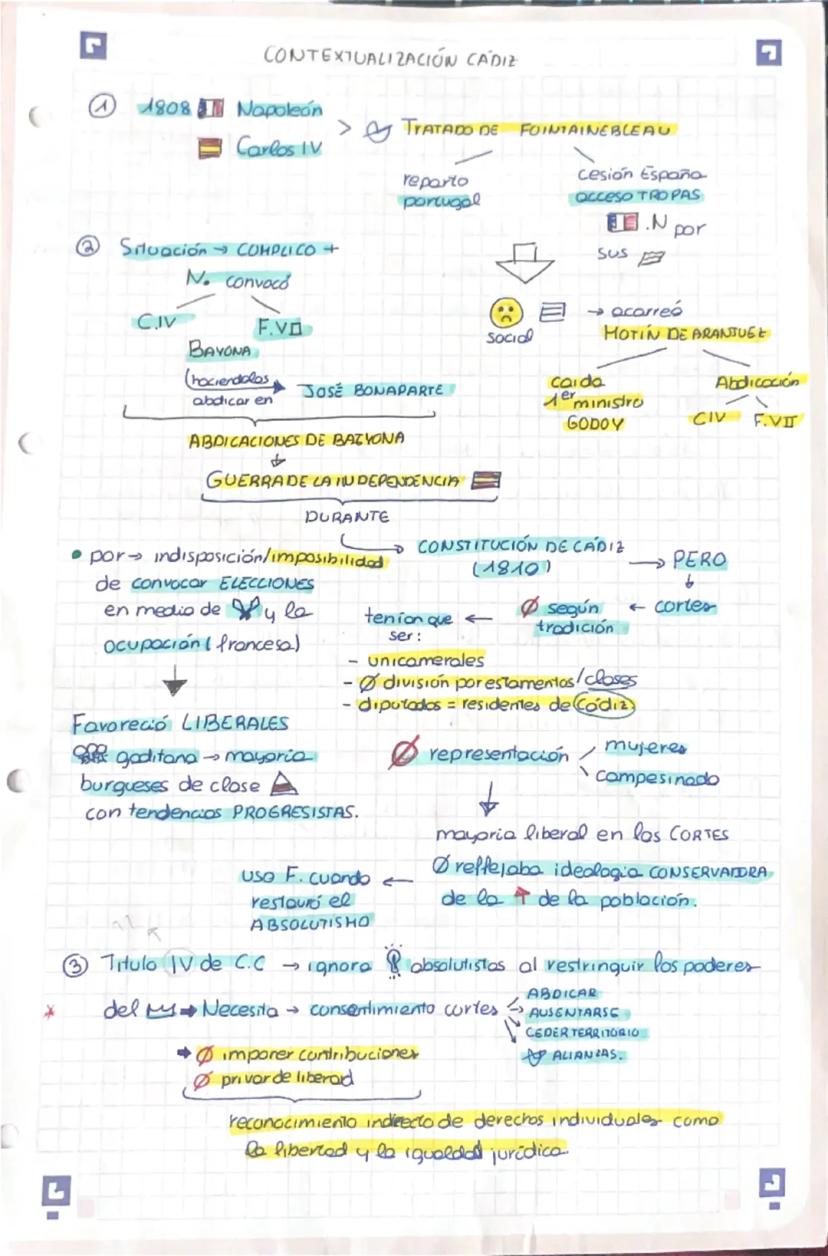 CONTEXTUALIZACIÓN CÁDIZ
① 1808 Napoleón
Carlos IV
> TRATADO DE FOINTAINEBLEAU
reparto
portugal
cesión España
acceso TROPAS
.N por
sus
② Situación → COMPLICO +
N. convocó
C.IV
F.VII
BAYONA
(haciendolos
abdicar en
JOSÉ BONAPARTE
ABDICACIONES DE BAYONA
GUERRA DE LA INDEPENDENCIA
DURANTE
social
→ acarreó
MOTÍN DE ARANJUEZ
caida
1er ministro
GODOY
Abdicación
CIV
F.VII
• por → indisposición/imposibilidad
de convocar ELECCIONES
en medio de y la
ocupación (francesa)
Favoreció LIBERALES
gaditana → mayoria
burgueses de clase
con tendencias PROGRESISTAS.
CONSTITUCIÓN DE CÁDIZ
(1810)
→ PERO
← cortes
Ø según
tradición
tenian que ←
ser:
- unicamerales
- Ø división por estamentos/clases
- diputados = residentes de Cádiz
Ø representación
mujeres
campesinado
mayoria liberal en las CORTES
Ø reflejaba ideologia CONSERVADORA
de la ↑ de la población.
uso F. cuando ←
restauró el
ABSOLUTISMO
③ Titulo IV de C.C → ignora absolutistas al restringuir los poderes
* del → Necesita → consentimiento cortes
ABDICAR
AUSENTARSE
CEDER TERRITORIO
ALIANZAS.
→ Ø imponer contribuciones
Ø privar de liberad
reconocimiento indirecto de derechos individuales como
la libertad y la igualdad jurídica.